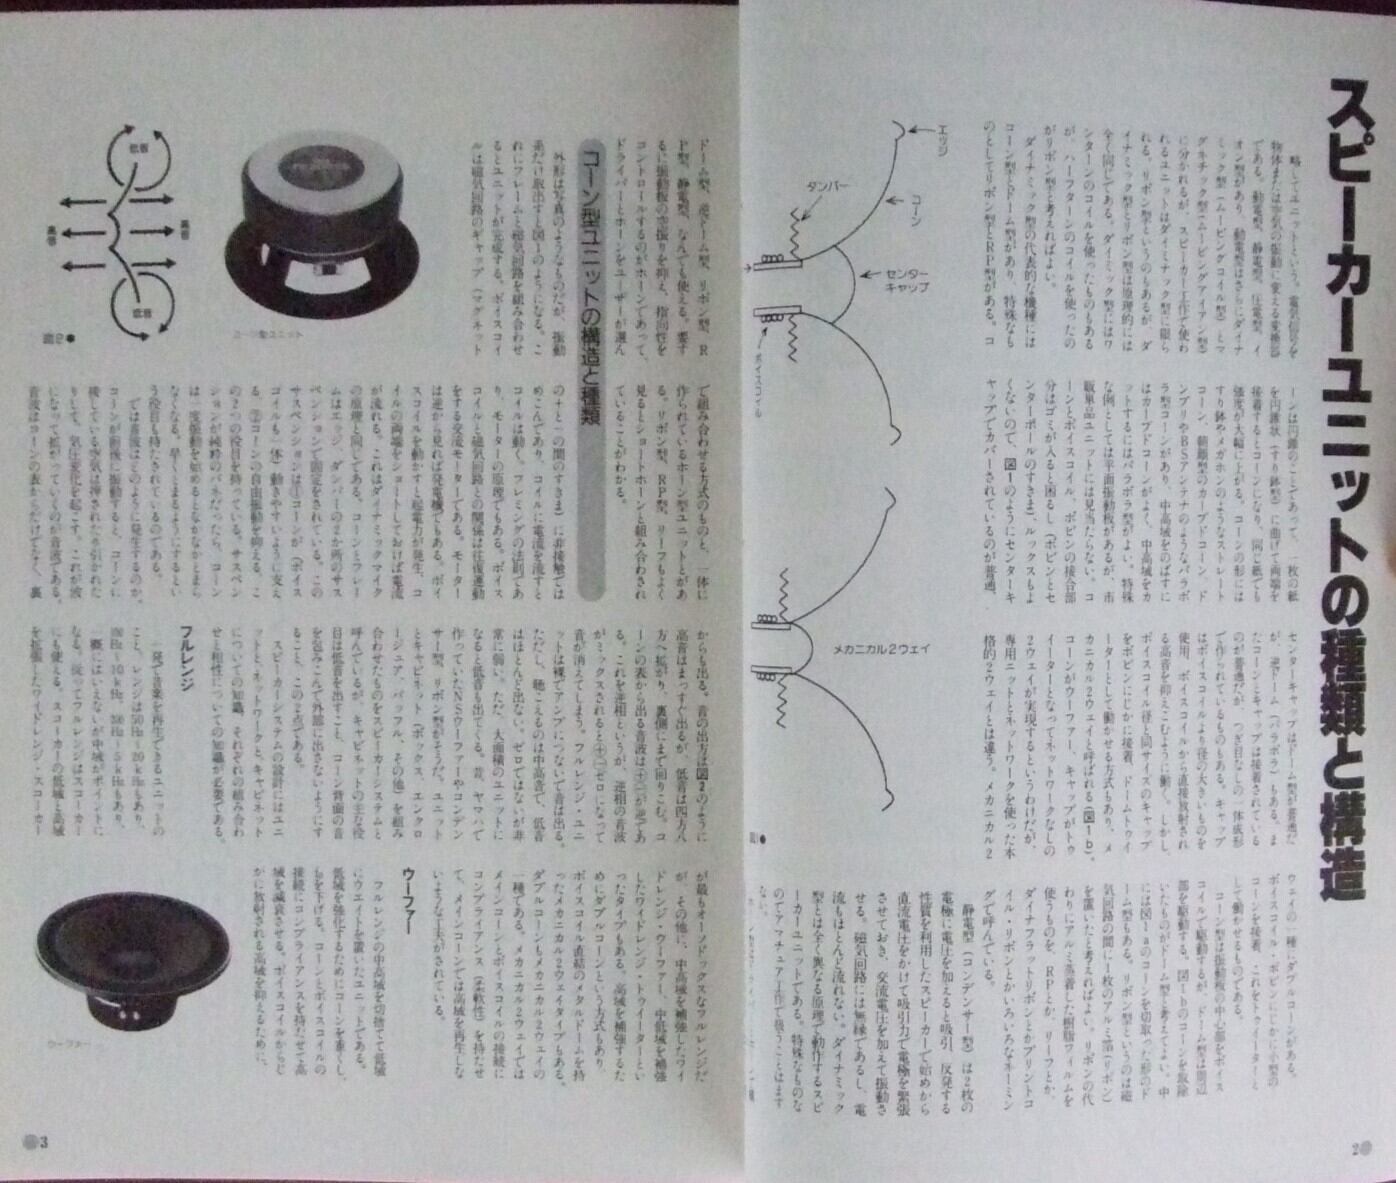 スピーカーユニットの種類と構造
略してユニットという。電気信号を
物体または空気の振動に変える変換器
である。動電型、静電型、圧電型、イ
オン型があり、動電型はさらにダイナ
ミック型（ムービングコイル型）とマ
グネチック型（ムービングアイアン型）
に分かれるが、スピーカー工作で使わ
れるユニットはダイナミック型に限ら
れる。リボン型というのもあるが、ダ
イナミック型とリボン型は原理的には
全く同じである。ダイナミック型にはワ
ンターンのコイルを使ったものもある
が、ハーフターンのコイルを使ったの
がリボン型と考えればよい。
ダイナミック型の代表的な機種には
コーン型とドーム型があり、特殊なも
のとしてリボン型とRP型がある。コ
エッジ
コーン
ダンパー
センター
キャップ
ボイスコイル
メカニカル2ウェイ
ーンは円錐のことであって、一枚の紙
を円錐状（すり鉢型）に曲げて両端を
接着するとコーンになり、同じ紙でも
強度が大幅に上がる。コーンの形には
すり鉢やメガホンのようなストレート
コーン、朝顔型のカーブドコーン、ド
ンブリやBSアンテナのようなパラボ
ラ型コーンがあり、中高域をのばすに
はカーブドコーンがよく、中高域をカ
ットするにはパラボラ型がよい。特殊
な例としては平面振動板があるが、市
販単品ユニットには見当たらない。コ
ーンとボイスコイル、ボビンの接合部
分はゴミが入ると困るし（ボビンとセ
ンターポールのすきま）ルックスもよ
くないので、図1のようにセンターキ
ャップでカバーされているのが普通、
センターキャップはドーム型が普通だ
が、逆ドーム（パラボラ）もある。ま
たコーンとキャップは接着されている
のが普通だが、つぎ目なしの一体成形
で作られているものもある。キャップ
はボイスコイルより径の大きいものを
使用、ボイスコイルから直接放射され
る高音を抑えこむように働く。しかし、
ボイスコイル径と同サイズのキャップ
をボビンにじかに接着、ドームトゥイ
ーターとして働かせる方式もあり、メ
カニカル2ウェイと呼ばれる（図1b）。
コーンがウーファー、キャップがトゥ
イーターとなってネットワークなしの
2ウェイが実現するというわけだが、
専用ユニットとネットワークを使った本
格的2ウェイとは違う。メカニカル2
ウェイの一種にダブルコーンがある。
ボイスコイル・ボビンにじかに小型の
コーンを接着、これをトゥイーターと
して働かせるものである。
コーン型は振動板の中心部をボイス
コイルで駆動するが、ドーム型は周辺
部を駆動する。図1bのコーンを取除
いたものがドーム型と考えてよい。中
には図1aのコーンを切取った形のド
ーム型もある。リボン型というのは磁
気回路の間に1枚のアルミ箔（リボン）
を置いたと考えればよい。リボンの代
わりにアルミ蒸着した樹脂フィルムを
使うものを、RPとか、リーフとか、
ダイナフラットリボンとかプリントコ
イル・リボンとかいろいろなネーミン
グで呼んでいる。
静電型（コンデンサー型）は2枚の
電極に電圧を加えると吸引、反発する
性質を利用したスピーカーで始めから
直流電圧をかけて吸引力で電極を緊張
させておき、交流電圧を加えて振動さ
せる。磁気回路には無縁であるし、電
流もほとんど流れない。ダイナミック
型とは全く異なる原理で動作するスピ
ーカーユニットである。特殊なものな
のでアマチュア工作で扱うことはまず
ない。
2
ドーム型、逆ドーム型、リボン型、R
P型、静電型、なんでも使える。要す
るに振動板の空振りを抑え、指向性を
コントロールするのがホーンであって、
ドライバーとホーンをユーザーが選ん
コーン型ユニットの構造と種類
外形は写真のようなものだが、振動
系だけ取出すと図1のようになる。こ
れにフレームと磁気回路を組み合わせ
るとユニットが完成する。ボイスコイ
ルは磁気回路のギャップ（マグネット
コーン型ユニット
低音
高音
高音
低音
図2●
で組み合わせる方式のものと、一体に
作られているホーン型ユニットとがあ
る。リボン型、RP型、リーフもよく
見るとショートホーンと組み合わされ
ていることがわかる。
の＋と－の間のすきま）に非接触では
めこんであり、コイルに電流を流すと
コイルは動く。フレミングの法則であ
り、モーターの原理でもある。ボイス
コイルと磁気回路との関係は往復運動
をする交流モーターである。モーター
は逆から見れば発電機でもある。ボイ
スコイルを動かすと起電力が発生、コ
イルの両端をショートしておけば電流
が流れる。これはダイナミックマイク
の原理と同じである。コーンとフレー
ムはエッジ、ダンパーの2か所のサス
ペンションで固定をされている。この
サスペンションは①コーンが（ボイス
コイルも一体）動きやすいように支え
る、②コーンの自由振動を抑える、こ
の2つの役目を持っている。サスペン
ションが純粋のバネだったら、コーン
は一度振動を始めるとなかなかとまら
なくなる。早くとまるようにするとい
う役目も持たされているのである。
では音波はどのように発生するのか。
コーンが前後に振動すると、コーンに
接している空気は押されたり引かれた
りして、気圧変化を起こす。これが波
になって拡がっていくのが音波である。
音波はコーンの表からだけでなく、裏
からも出る。音の出方は図2のように
高音はまっすぐ出るが、低音は四方八
方へ拡がり、裏側にまで回りこむ。コ
ーンの表から出る音波は＋－が逆であ
る。これを逆相というが、逆相の音波
がミックスされると＋－ゼロになって
音が消えてしまう。フルレンジ・ユニ
ットは裸でアンプにつないで音は出る。
ただし、聴こえるのは中高音で、低音
はほとんど出ない。ゼロではないが非
常に弱い。ただ、大面積のユニットに
なると低音も出てくる。昔、ヤマハで
作っていたNSウーファーやコンデン
サー型、リボン型がそうだ。ユニット
とキャビネット（ボックス、エンクロ
ージュア、バッフル、その他）を組み
合わせたものをスピーカーシステムと
呼んでいるが、キャビネットの主な役
目は低音を出すこと、コーン背面の音
を包みこんで外部に出さないようにす
ること、この2点である。
スピーカーシステムの設計にはユニ
ットと、ネットワークと、キャビネット
についての知識、それぞれの組み合わ
せと相性についての知識が必要である。
フルレンジ
一発で音楽を再生できるユニットの
こと、レンジは50Hz〜20kHzもあり、
100Hz〜10kHz、200Hz〜5kHzもあり、
一概にはいえないが中域がポイントに
なる。従ってフルレンジはスコーカー
にも使える。スコーカーの低域と高域
を拡張したワイドレンジ・スコーカー
が最もオーソドックスなフルレンジだ
が、その他に、中高域を補強したワイ
ドレンジ・ウーファー、中低域を補強
したワイドレンジ・トゥイーターとい
ったタイプもある。高域を補強するた
めにダブルコーンという方式もあり、
ボイスコイル直結のメタルドームを持
ったメカニカル2ウェイタイプもある。
ダブルコーンもメカニカル2ウェイの
一種である。メカニカル2ウェイでは
メインコーンとボイスコイルの接続に
コンプライアンス（柔軟性）を持たせ
て、メインコーンでは高域を再生しな
いような工夫がされている。
ウーファー
フルレンジの中高域を切捨てて低域
にウエイトを置いたユニットである。
低域を強化するためにコーンを重くし、
f0を下げる。コーンとボイスコイルの
接続にコンプライアンスを持たせて高
域を減衰させる。ボイスコイルからじ
かに放射される高域を抑えるために、
ウーファー
3